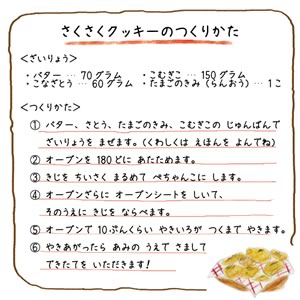 さくさくクッキーのつくりかた
<ざいりょう>
・バター … 70グラム ・こむぎこ … 150グラム
・こなざとう … 60グラム ・たまごのきみ(らんおう) … 1こ
<つくりかた>
① バター、さとう、たまごのきみ、こむぎこの じゅんばんで
ざいりょうを まぜます。(くわしくは えほんを よんでね)
② オーブンを 180どに あたためます。
③ きじを ちいさく まるめて ぺちゃんこに します。
④ オーブンざらに オーブンシートを しいて、
そのうえに きじを ならべます。
⑤ オーブンで 10ぷんくらい やきいろが つくまで やきます。
⑥ やきあがったら あみの うえで さまして
できたてを いただきます!